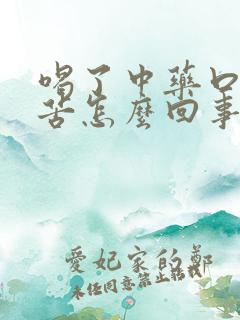 喝了中藥口
苦怎麼回事
愛妃家的鄭
未任同意禁止轉載